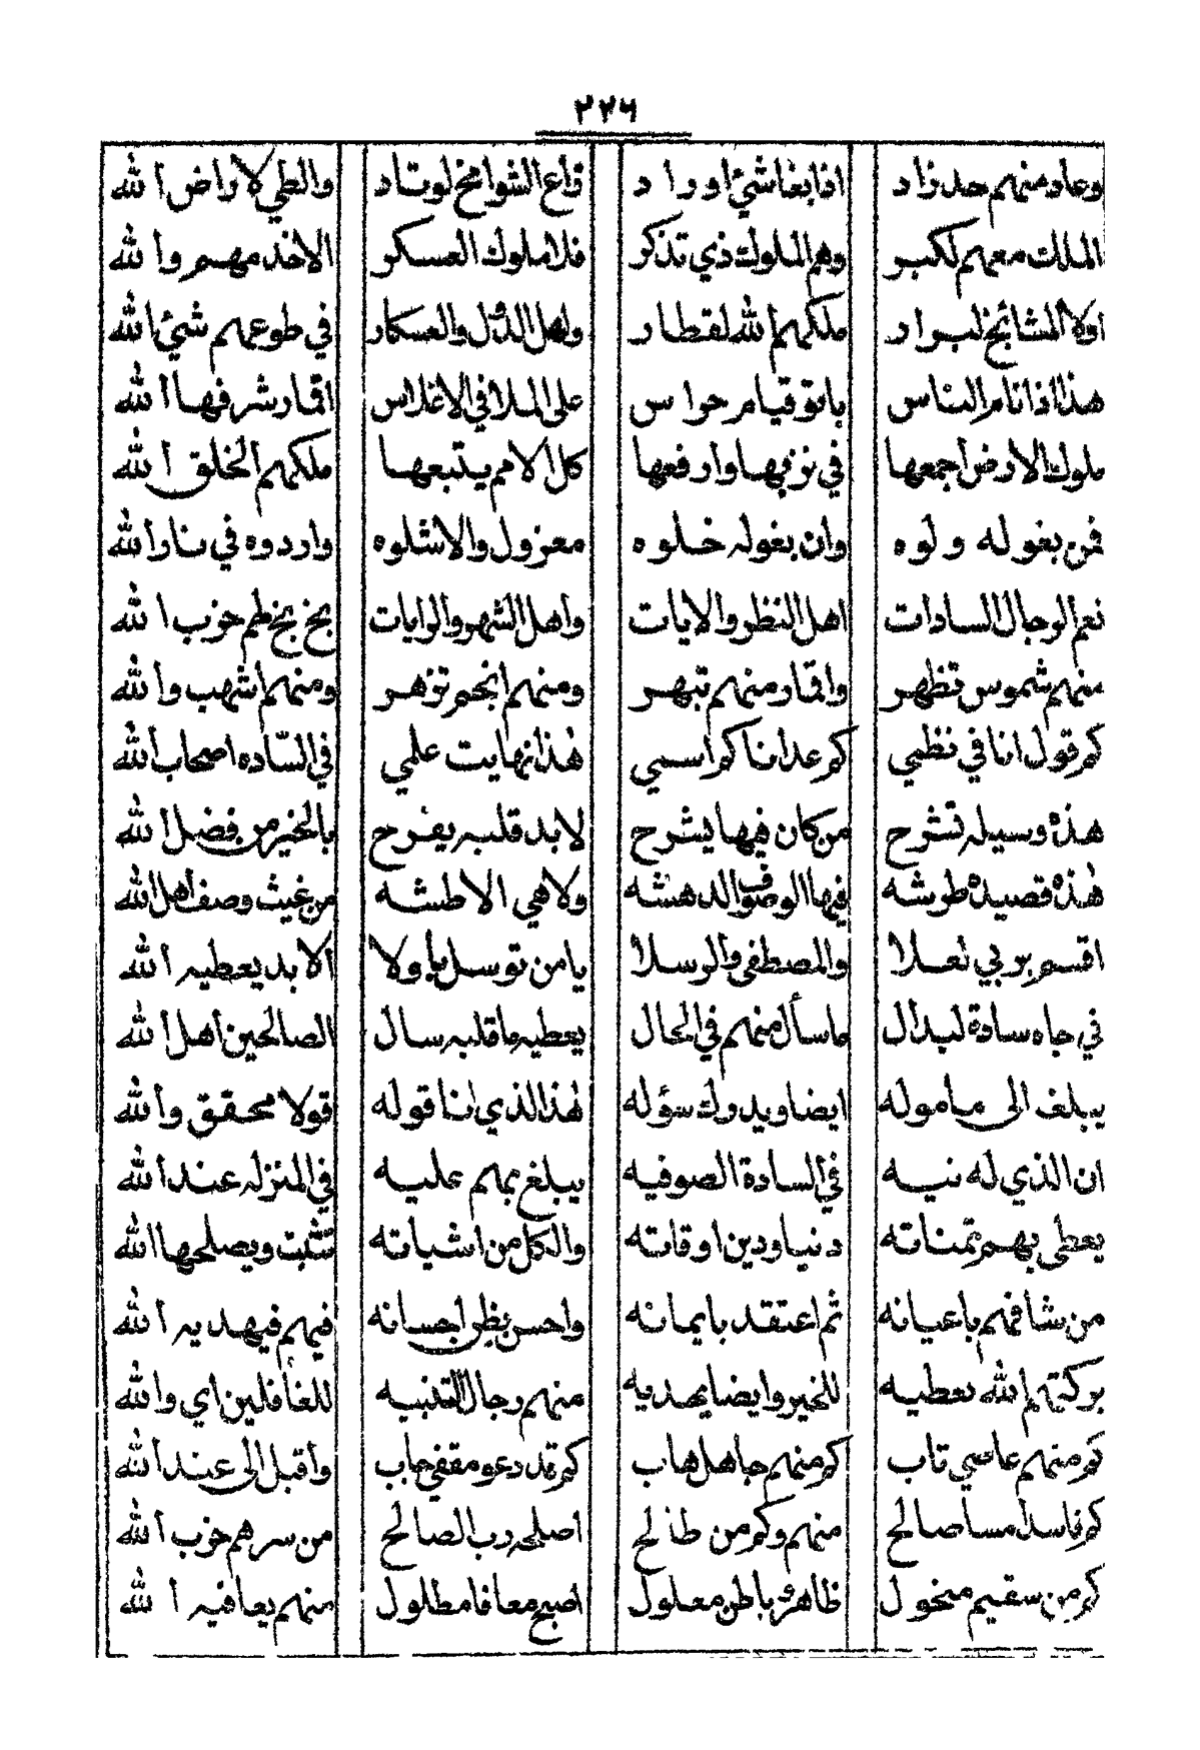 ٢٢٦
وعاد منهم حد زاد اذا بغا شيء اوراد قراع الشوامخ لوتاد والطي لاراض الله
الملك معهم لكبر وهم الملوك ذي تذكر فلا ملوك العسكر الاخدمهم والله
اولا المشائخ لبرار ملكهم الله لقطار واهل الدول والعسكار في طوعهم شيء الله
هذا اذا نام الناس باتو قيام حراس على الملا في الاغلاس اقمار شرفها الله
ملوك الارض اجمعها في نزبها وارفعها كل الامم يتبعها ملكهم الخلق الله
فمن بغوله ولوه وان بغوله خلوه معزول والاشلوه واردوه في نار الله
نعم الرجال السادات اهل النظر والايات واهل الشهر والرايات بخ بخ طم حزب الله
منهم شموس تظهر واقمار منهم تبهر ومنهم انجم تزهر ومنهم اشهب والله
كم قول انا في نظمي كم عدانا كم اسمي هذا نهايت علمي في الساده اصحاب الله
هذه وسيله تشرح من كان فيها يشرح لابد قلبه يفرح بالخير من فضل الله
هذه قصيده طرشه فيها الوصوف الدهشه ولا هي الا طشه من غيث وصف اهل الله
اقسم بربي تعلا والمصطفى والرسلا يا من توسل باولا الابد يعطيه الله
في جاه سادة لبدال ما سأل منهم في الحال يعطيه ما قلبه سال الصالحين اهل الله
يبلغ الى مأموله ايضا ويدرك سؤله هذا الذي انا قوله قولا محقق والله
ان الذي له نيه في السادة الصوفيه يبلغ بهم عليه في المنزله عند الله
يعطى بهم تمناته دنيا ودين اوقاته والكل من اشياته تثبت ويصلحها الله
من شافهم باعيانه ثم اعتقد بايمانه واحسن بظن احسانه فيهم فيهديه الله
بركتهم الله يعطيه للخير وايضا يهديه منهم رجال التنبيه للغافلين اي والله
كم منهم عاصي تاب كم منهم جاهل هاب كم قد دعو مقفي جاب واقبل الى عند الله
كم فاسد امسا صالح منهم وكم من طالح اصلحه رب الصالح من سرهم حزب الله
كم من سقيم منحول ظاهر باطن معلول اصبح معافا مطلول منهم يعافيه الله